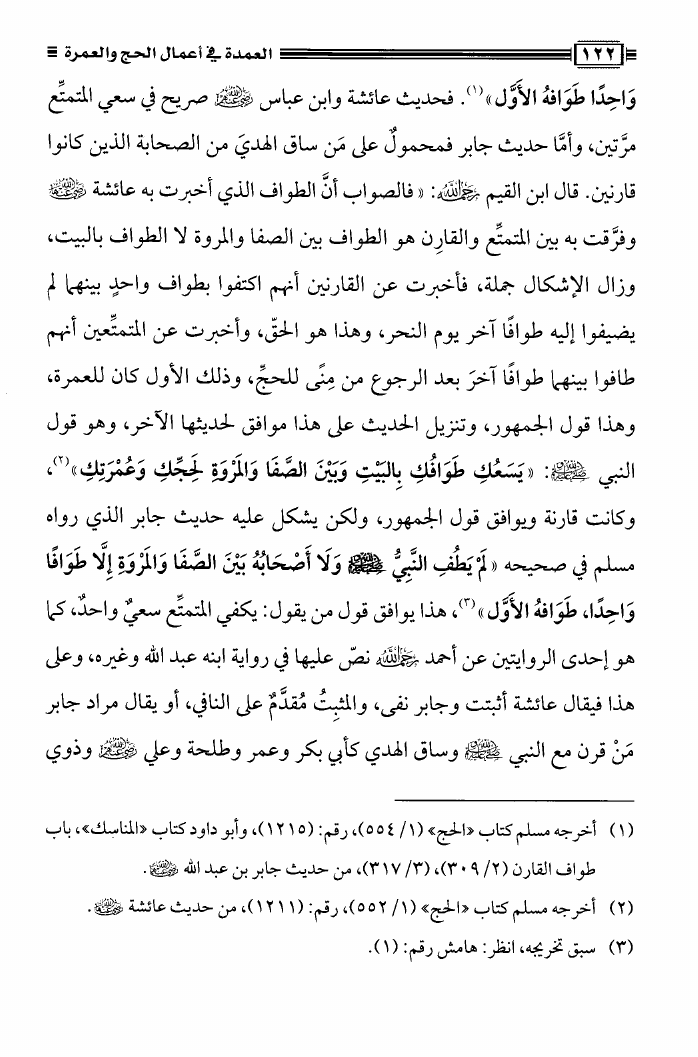 ١٢٢ العمدة في أعمال الحج والعمرة
وَاحِدًا طَوَافَهُ الأَوَّل»(١). فحديث عائشة وابن عباس رضي الله عنهم صريح في سعي المتمتِّع
مرَّتين، وأمَّا حديث جابر فمحمولٌ على مَن ساق الهديَ من الصحابة الذين كانوا
قارنين. قال ابن القيم رحمه الله: «فالصواب أنَّ الطواف الذي أخبرت به عائشة رضي الله عنها
وفرَّقت به بين المتمتِّع والقارِن هو الطواف بين الصفا والمروة لا الطواف بالبيت،
وزال الإشكال جملة، فأخبرت عن القارنين أنهم اكتفوا بطواف واحدٍ بينهما لم
يضيفوا إليه طوافًا آخر يوم النحر، وهذا هو الحقّ، وأخبرت عن المتمتِّعين أنهم
طافوا بينهما طوافًا آخرَ بعد الرجوع من مِنًى للحجِّ، وذلك الأول كان للعمرة،
وهذا قول الجمهور، وتنزيل الحديث على هذا موافق لحديثها الآخر، وهو قول
النبي ﷺ: «يَسَعُكِ طَوَافُكِ بِالبَيْتِ وَبَيْنَ الصَّفَا وَالمَرْوَةِ لِحَجِّكِ وَعُمْرَتِكِ»(٢)،
وكانت قارنة ويوافق قول الجمهور، ولكن يشكل عليه حديث جابر الذي رواه
مسلم في صحيحه «لَمْ يَطُفِ النَّبِيُّ ﷺ وَلَا أَصْحَابُهُ بَيْنَ الصَّفَا وَالمَرْوَةِ إِلَّا طَوَافًا
وَاحِدًا، طَوَافَهُ الأَوَّل»(٣)، هذا يوافق قول من يقول: يكفي المتمتِّع سعيٌ واحدٌ، كما
هو إحدى الروايتين عن أحمد رحمه الله نصّ عليها في رواية ابنه عبد الله وغيره، وعلى
هذا فيقال عائشة أثبتت وجابر نفى، والمثبِتُ مُقدَّمٌ على النافي، أو يقال مراد جابر
مَنْ قرن مع النبي ﷺ وساق الهدي كأبي بكر وعمر وطلحة وعلي رضي الله عنهم وذوي
(١) أخرجه مسلم كتاب «الحج» (١/ ٥٥٤)، رقم: (١٢١٥)، وأبو داود كتاب «المناسك»، باب
طواف القارن (٢/ ٣٠٩)، (٣/ ٣١٧)، من حديث جابر بن عبد الله رضي الله عنهما.
(٢) أخرجه مسلم كتاب «الحج» (١/ ٥٥٢)، رقم: (١٢١١)، من حديث عائشة رضي الله عنها.
(٣) سبق تخريجه، انظر: هامش رقم: (١).